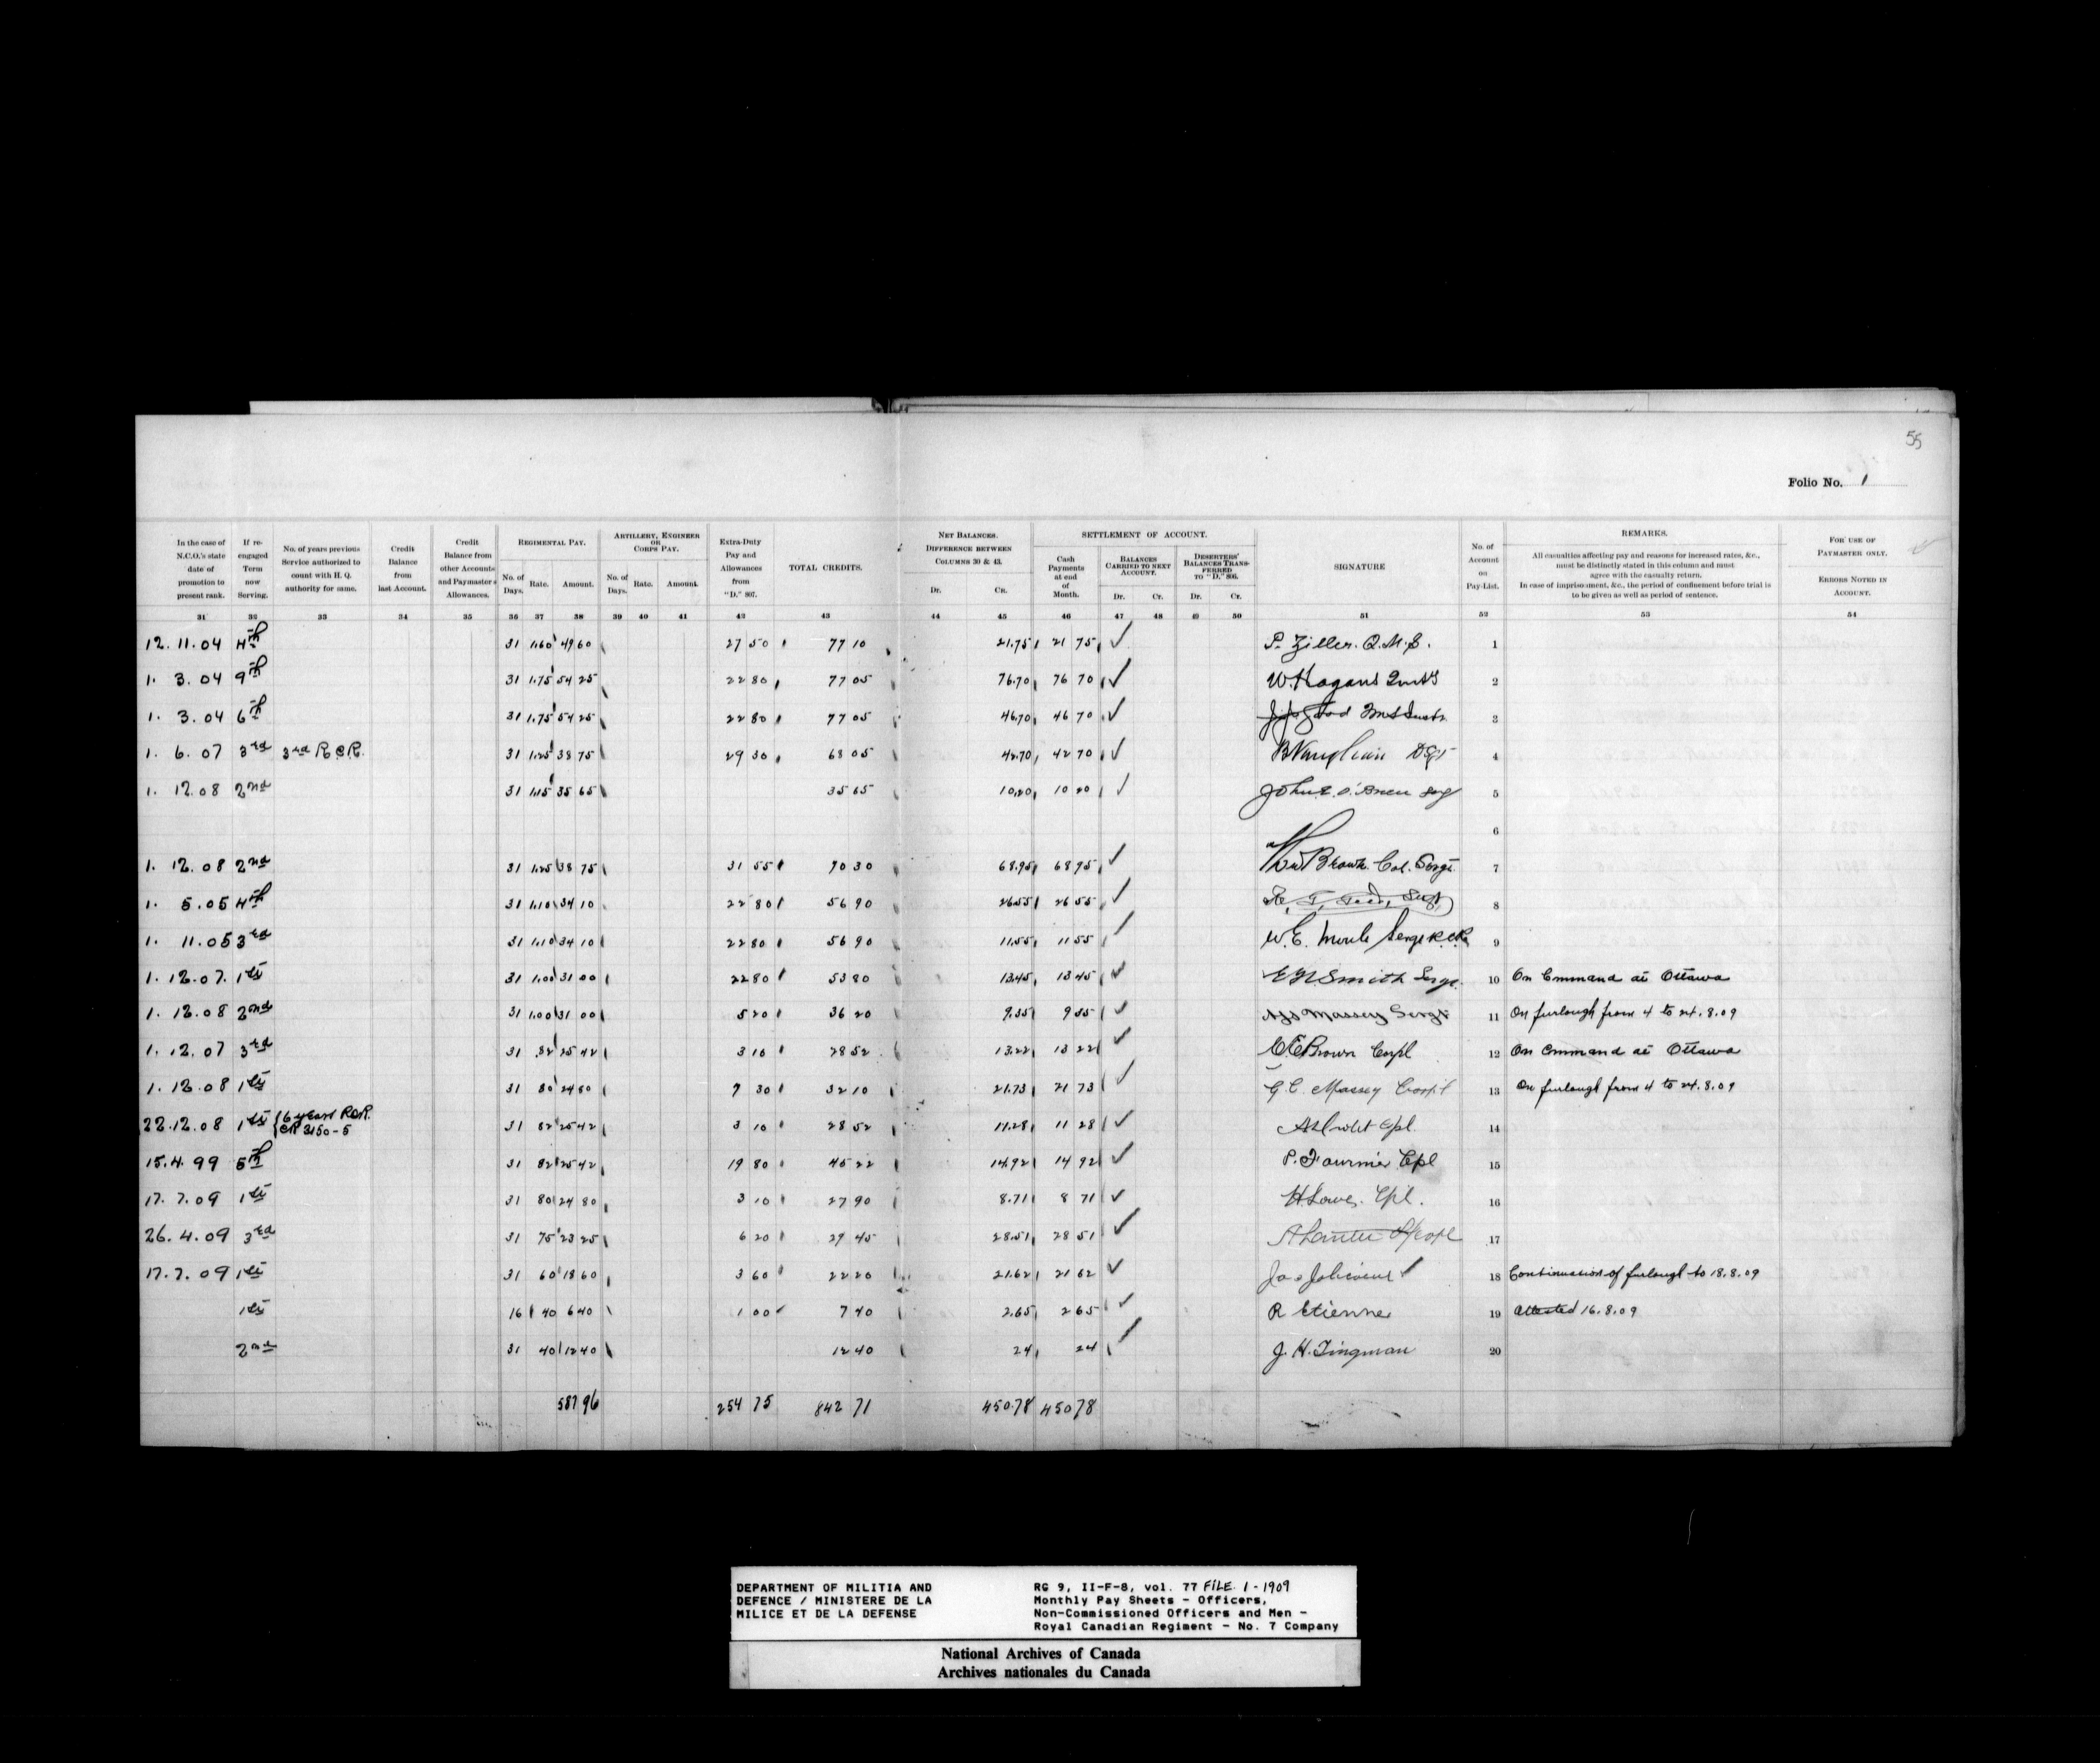 55
Folio No. 1
In the case of N.C.O.'s state date of promotion to present rank.
If re-engaged Term now Serving.
No. of years previous Service authorized to count with H. Q. authority for same.
Credit Balance from last Account.
Credit Balance from other Accounts and Paymaster's Allowances.
REGIMENTAL PAY.
No. of Days. Rate. Amount.
ARTILLERY, ENGINEER OR CORPS PAY.
No. of Days. Rate. Amount.
Extra-Duty Pay and Allowances from "D." 807.
TOTAL CREDITS.
NET BALANCES. DIFFERENCE BETWEEN COLUMNS 30 & 43.
Dr. Cr.
SETTLEMENT OF ACCOUNT.
Cash Payments at end of Month.
BALANCES CARRIED TO NEXT ACCOUNT.
Dr. Cr.
DESERTERS' BALANCES TRANSFERRED TO "D," 805.
Dr. Cr.
SIGNATURE
No. of Account on Pay-List.
REMARKS.
All casualties affecting pay and reasons for increased rates, &c., must be distinctly stated in this column and must agree with the casualty return.
In case of imprisonment, &c., the period of confinement before trial is to be given as well as period of sentence.
FOR USE OF PAYMASTER ONLY.
ERRORS NOTED IN ACCOUNT.
31 32 33 34 35 36 37 38 39 40 41 42 43 44 45 46 47 48 49 50 51 52 53 54
12. 11. 04 4th 31 1.60 49 60 27 50 77 10 21.75 21 75 ✓ P. Ziller. Q.M.S. 1
1. 3. 04 9th 31 1.75 54 25 22 80 77 05 76.70 76 70 ✓ W. Hagans 2
1. 3. 04 6th 31 1.75 54 25 22 80 77 05 46.70 46 70 ✓ 3
1. 6. 07 3rd 3rd R.C.R. 31 1.25 38 75 29 30 68 05 42.70 42 70 ✓ B Vaughan 4
1. 12. 08 2nd 31 1.15 35 65 35 65 10.20 10 20 ✓ John E. O'Brien Sgt 5
6
1. 12. 08 2nd 31 1.25 38 75 31 55 70 30 68.95 68 95 ✓ Brown. Col. Sergt. 7
1. 5. 05 4th 31 1.10 34 10 22 80 56 90 26.55 26 55 ✓ 8
1. 11. 05 3rd 31 1.10 34 10 22 80 56 90 11.55 11 55 ✓ W. E. Sergt R.C.R. 9
1. 12. 07. 1st 31 1.00 31 00 22 80 53 80 13.45 13 45 ✓ Smith Sergt. 10 On Command at Ottawa
1. 12. 08 2nd 31 1.00 31 00 5 20 36 20 9.35 9 35 ✓ Massey Sergt 11 On furlough from 4 to 24. 8. 09
1. 12. 07 3rd 31 .82 25 42 3 10 28 52 13.22 13 22 ✓ Brown Corpl 12 On Command at Ottawa
1. 12. 08 1st 31 80 24 80 7 30 32 10 21.73 21 73 ✓ G. C. Massey Corp'l 13 On furlough from 4 to 24. 8. 09
22. 12. 08 1st 6 years R.C.R. CR 3150-5 31 82 25 42 3 10 28 52 11.28 11 28 ✓ Cpl. 14
15. 4. 99 5th 31 82 25 42 19 80 45 22 14.92 14 92 ✓ P. Fournier Cpl 15
17. 7. 09 1st 31 80 24 80 3 10 27 90 8.71 8 71 ✓ H Lowe. Cpl. 16
26. 4. 09 3rd 31 75 23 25 6 20 29 45 28.51 28 51 ✓ 17
17. 7. 09 1st 31 60 18 60 3 60 22 20 21.62 21 62 ✓ Jas ✓ 18 Continuation of furlough to 18. 8. 09
1st 16 40 6 40 1 00 7 40 2.65 2 65 ✓ R Etienne 19 Attested 16. 8. 09
2nd 31 40 12 40 12 40 24 24 ✓ J. H. Tingman 20
587 96 254 75 842 71 450.78 450 78
DEPARTMENT OF MILITIA AND
DEFENCE / MINISTERE DE LA
MILICE ET DE LA DEFENSE
RG 9, II-F-8, vol. 77 FILE. 1 - 1909
Monthly Pay Sheets - Officers,
Non-Commissioned Officers and Men -
Royal Canadian Regiment - No. 7 Company
National Archives of Canada
Archives nationales du Canada